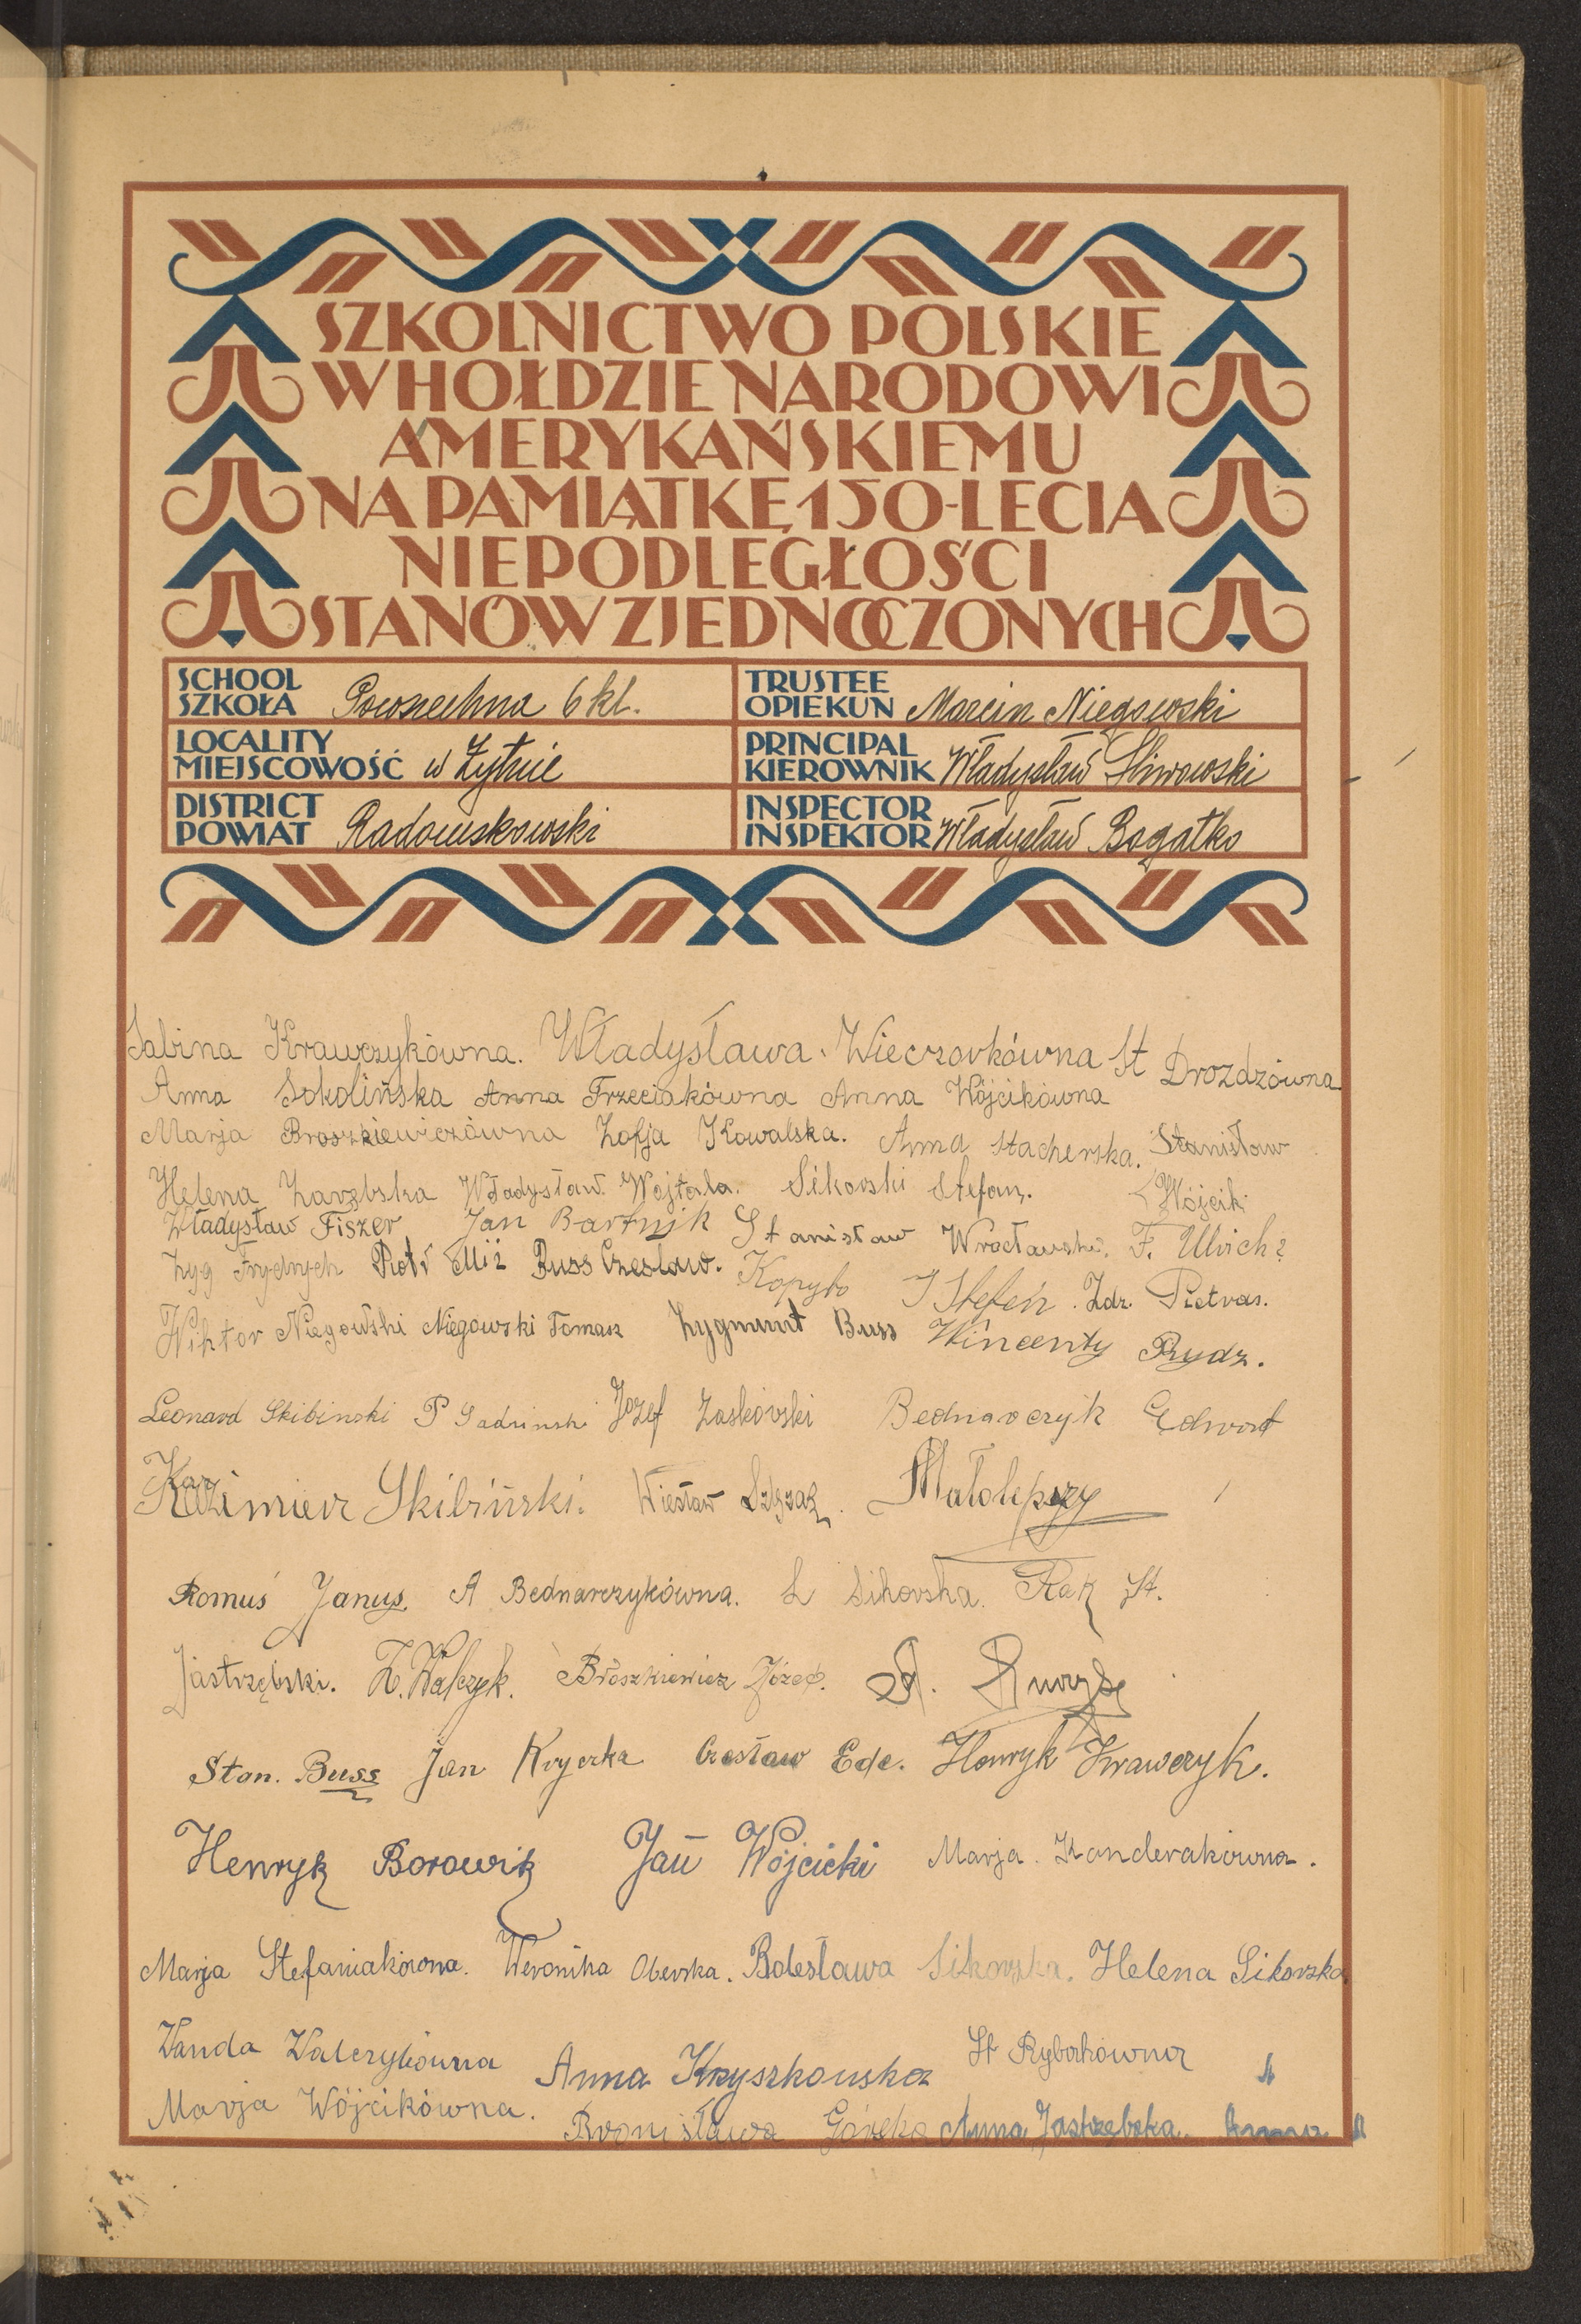 SZKOLNICTWO POLSKIE
W HOŁDZIE NARODOWI
AMERYKAŃSKIEMU
NA PAMIĄTKĘ 150-LECIA
NIEPODLEGŁOŚCI
STANÓW ZJEDNOCZONYCH
SCHOOL
SZKOŁA Powszechna 6 kl.
TRUSTEE
OPIEKUN Marcin Niegowski
LOCALITY
MIEJSCOWOŚĆ w Żytnie
PRINCIPAL
KIEROWNIK Władysław Śliwowski
DISTRICT
POWIAT Radomskowski
INSPECTOR
INSPEKTOR Władysław Bogatko
Sabina Krawczykówna. Władysława Wieczorkówna St Drozdzówna
Anna Sokolińska Anna Trzeciakówna Anna Wójcikówna
Marja Broszkiewiczówna Zofja Kowalska. Anna Stacherska. Stanisław
Helena Zarębska Władysław Wojtala. Sikorski Stefan. Wójcik
Władysław Fiszer Jan Bartnik Stanisław Wrocławski. F. Ulrich
Zyg Frydrych Piotr Miż Buss Czesław. Kopyto J Stefen. Zdr. Pietras.
Wiktor Niegowski Niegowski Tomasz Zygmunt Buss Wincenty Rydz.
Leonard Skibinski P Józef Zaskórski Bednarczyk Edward
Kazimierz Skibiński. Wiesław Małolepszy
Romuś Janus. A Bednarczykówna. L Sikorska. Rak St.
Jastrzębski. Z. Walczyk. Broszkiewicz Józef.
Stan. Buss Jan Kryczka Czesław Ede. Henryk Krawczyk.
Henryk Borowik Jan Wójcicki Marja Kanderakówna.
Marja Stefaniakówna. Weronika Oberska. Bolesława Sikorska. Helena Sikorska
Wanda Walczykówna Anna Kryszkowska St Rybakówna
Marja Wójcikówna. Bronisława Górska Anna Jastrzębska. Anna